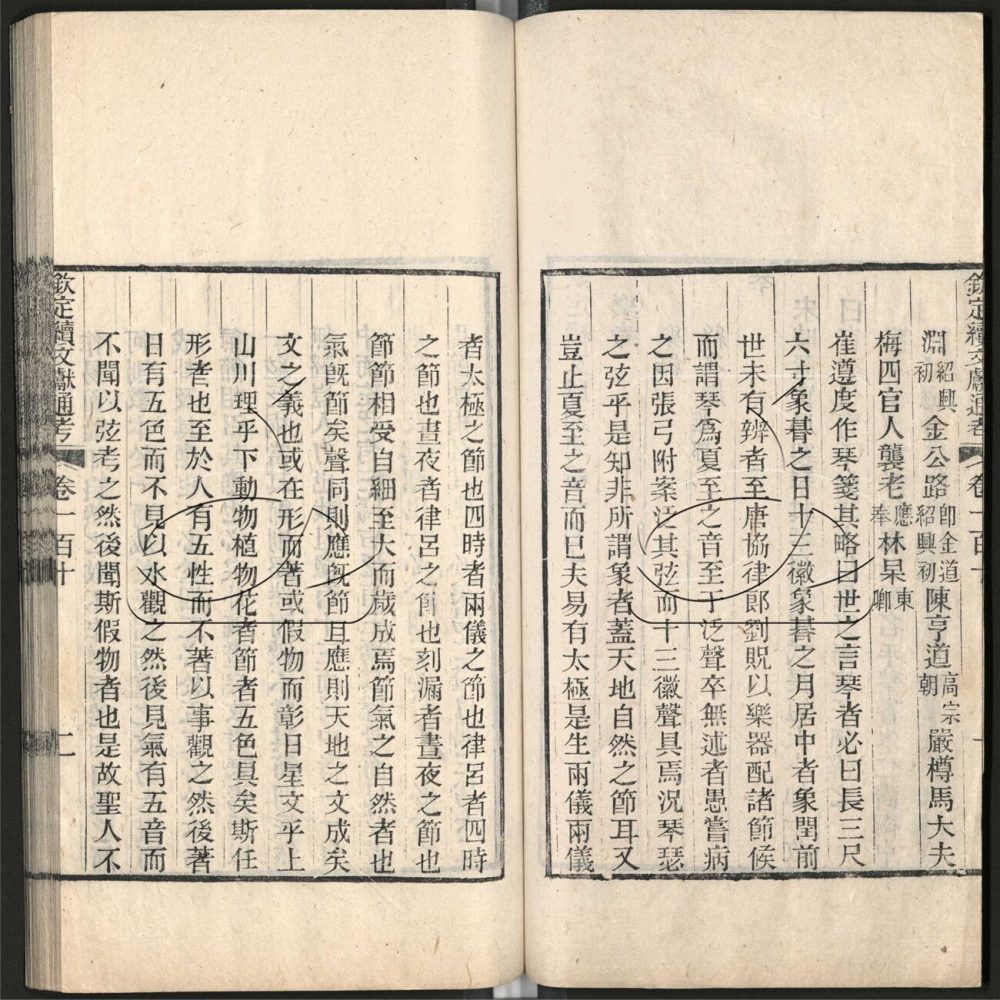 欽定續文獻通考 卷一百十
淵紹興初金公路卽金道紹興初陳亨道高宗朝嚴樽馬大夫
梅四官人龔老應奉林杲東卿
崔遵度作琴箋其略曰世之言琴者必曰長三尺
六寸象朞之日十三徽象朞之月居中者象閏前
世未有辨者至唐協律郎劉貺以樂器配諸節候
而謂琴爲夏至之音至于泛聲卒無述者愚嘗病
之因張弓附案泛其弦而十三徽聲具焉況琴瑟
之弦乎是知非所謂象者蓋天地自然之節耳又
豈止夏至之音而巳夫易有太極是生兩儀兩儀
者太極之節也四時者兩儀之節也律呂者四時
之節也晝夜者律呂之節也刻漏者晝夜之節也
節節相受自細至大而歲成焉節氣之自然者也
氣旣節矣聲同則應旣節且應則天地之文成矣
文之義也或在形而著或假物而彰日星文乎上
山川理乎下動物植物花者節者五色具矣斯任
形者也至於人有五性而不著以事觀之然後著
日有五色而不見以水觀之然後見氣有五音而
不聞以弦考之然後聞斯假物者也是故聖人不
欽定續文獻通考 卷一百十 二